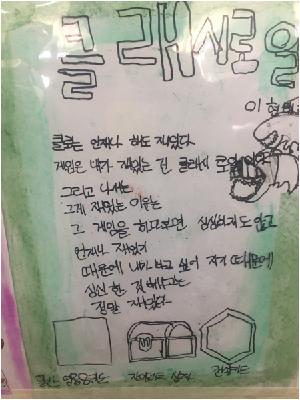 클래시로얄
이현
클로는 언제나 해도 재밌다
게임은 내가 재밌는 건 클래시 로얄이
그리고 나서는
그게 재밌는 이유는
그 게임을 하다보면 심심하지도 않고
언제나 재밌기
때문에 내가 하고 싶어 지기 때문에
심심한
정말 재밌었다
상자
전설카드